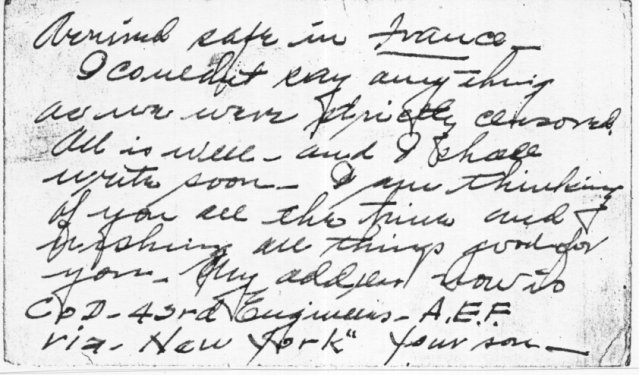 Arrived safe in France—
I couldn't say anything
as we were strictly censored.
All is well— and I shall
write soon— I am thinking
of you all the time and
wishing all things good for
you— My address now is
Co D— 43rd Engineers— A.E.F
via— New York" Your son—